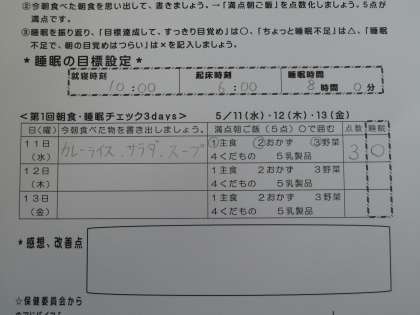 ②今朝食べた朝食を思い出して、書きましょう。→「満点朝ご飯」を点数化しましょう。5点が
満点です。
③睡眠を振り返り、「目標達成して、すっきり目覚め」は○、「ちょっと睡眠不足」は△、「睡眠
不足で、朝の目覚めはつらい」は×を記入しましょう。
*睡眠の目標設定*
就寝時刻 起床時刻 睡眠時間
10:00 6:00 8時間0分
<第1回朝食・睡眠チェック3days> 5/11(水)・12(木)・13(金)
日(曜) 今朝食べた物を書き出しましょう。 満点朝ご飯(5点)○で囲む 点数 睡眠
11日(水) カレーライス.サラダ.スープ ①主食 ②おかず ③野菜 3 ○
4くだもの 5乳製品
12日(木) 1主食 2おかず 3野菜
4くだもの 5乳製品
13日(金) 1主食 2おかず 3野菜
4くだもの 5乳製品
*感想、改善点
☆保健委員会から